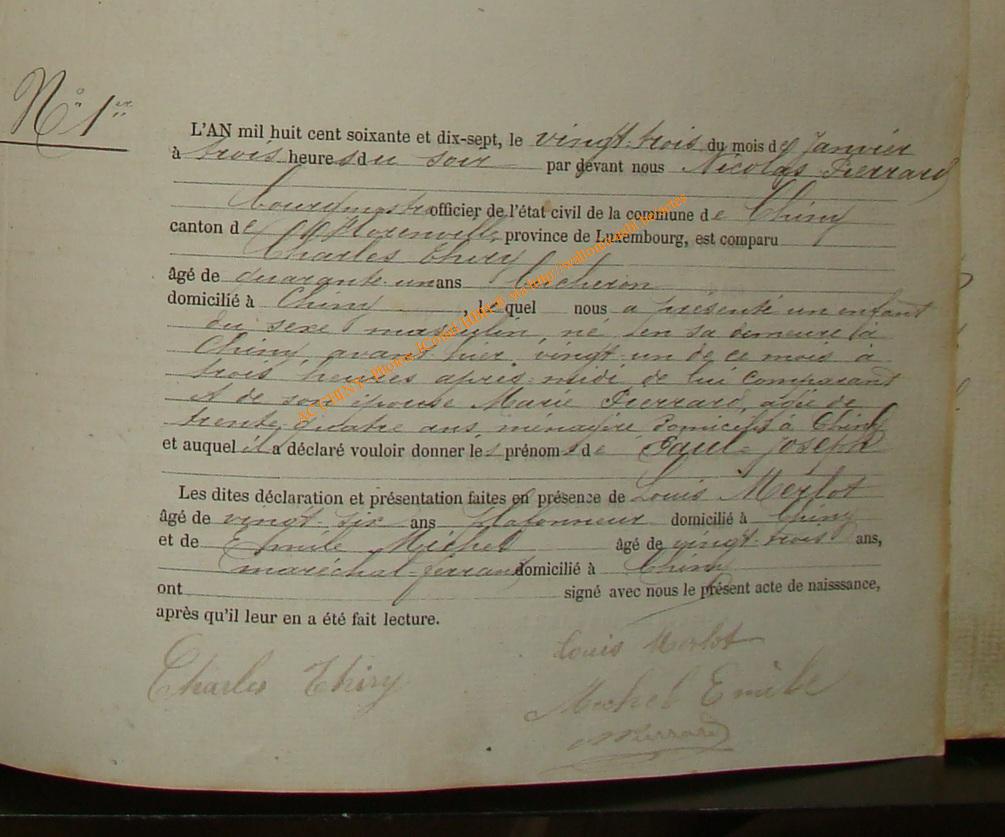 N° 1er
L'AN mil huit cent soixante et dix-sept, le vingt-trois du mois de Janvier
à trois heures du soir par devant nous Nicolas Pierrard
bourgmestre officier de l'état civil de la commune de Chiny
canton de Florenville, province de Luxembourg, est comparu
Charles Thiry
âgé de quarante-un ans bucheron
domicilié à Chiny, lequel nous a présenté un enfant
du sexe masculin, né en sa demeure à
Chiny, avant hier, vingt-un de ce mois à
trois heures après-midi, de lui comparant
et de son épouse Marie Pierrard, agée de
trente-quatre ans, ménagère domiciliés à Chiny
et auquel il a déclaré vouloir donner les prénoms de Paul-Joseph
Les dites déclaration et présentation faites en présence de Louis Merlot
âgé de vingt-six ans plafonneur domicilié à Chiny
et de Emile Michel âgé de vingt-trois ans,
maréchal-ferrant domicilié à Chiny
ont signé avec nous le présent acte de naisssance,
après qu'il leur en a été fait lecture.
Louis Merlot
Charles Thiry
Michel Emile
NPierrard